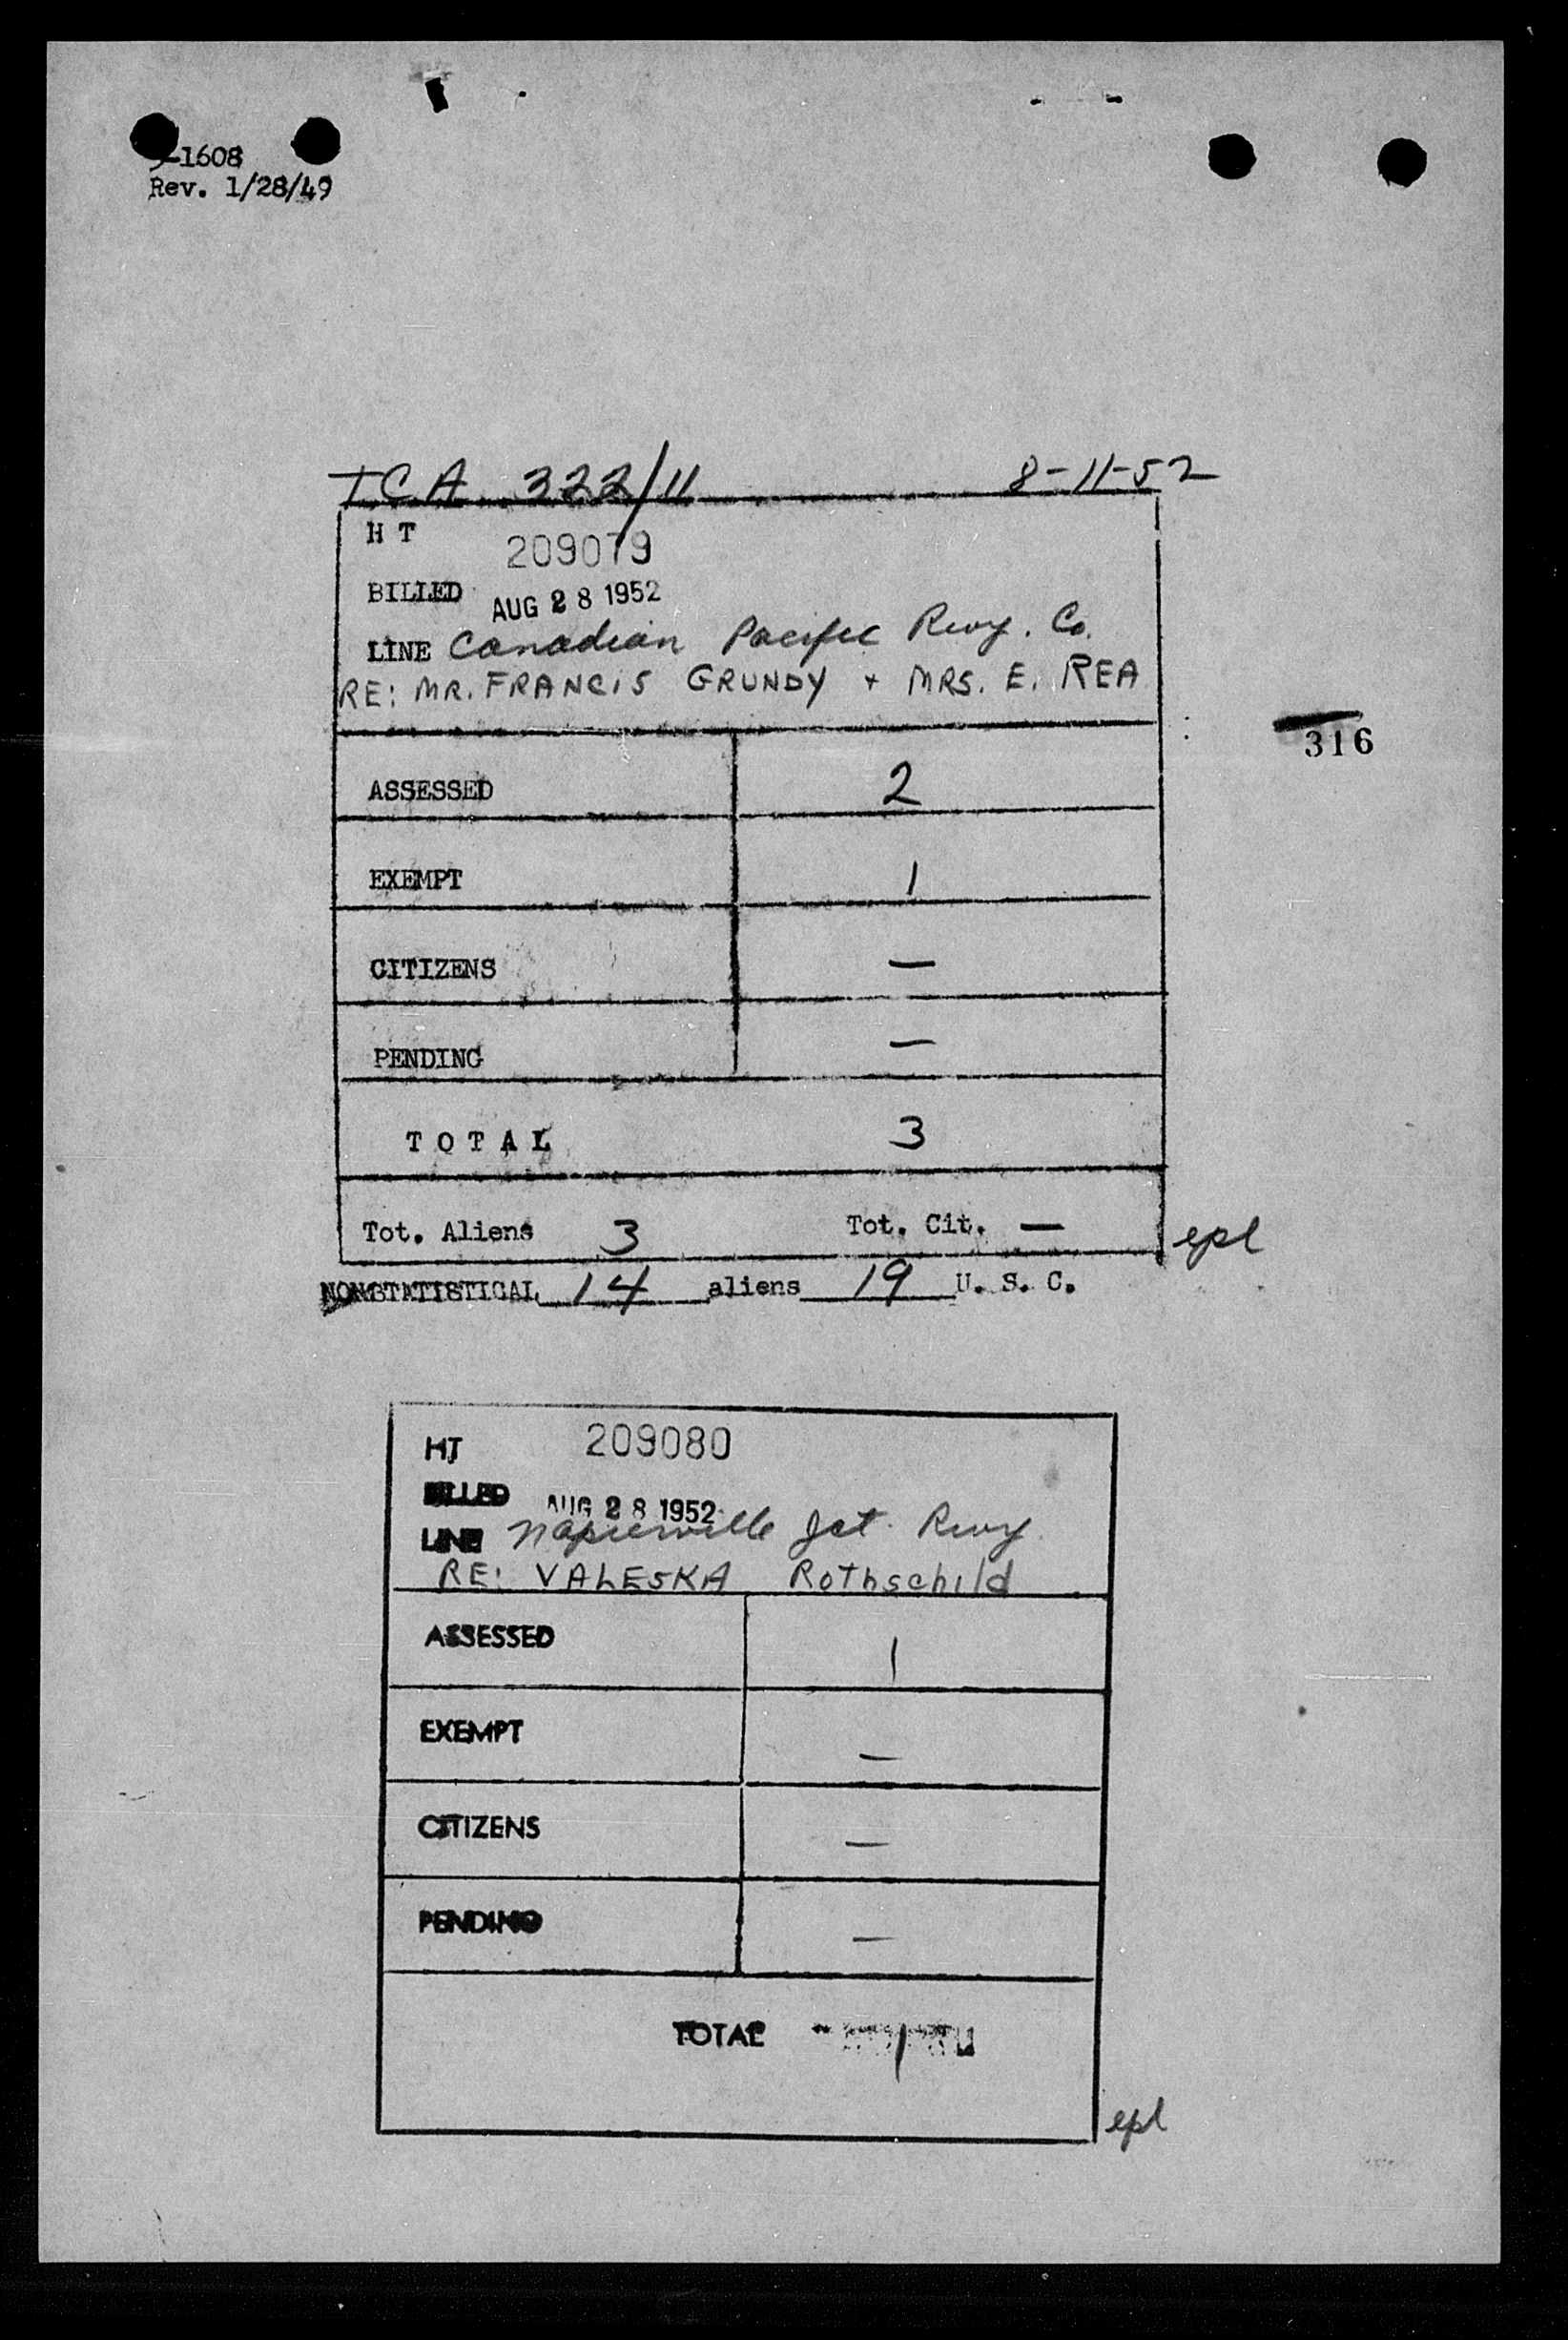 -1608
Rev. 1/28/49
TCA 322/11 8-11-52
H T 209079
BILLED AUG 28 1952
LINE Canadian Pacific Rwy. Co.
RE: MR. FRANCIS GRUNDY + MRS. E. REA
316
ASSESSED 2
EXEMPT 1
CITIZENS —
PENDING —
TOTAL 3
Tot. Aliens 3 Tot. Cit. — epl
NONSTATISTICAL 14 aliens 19 U. S. C.
HT 209080
BILLED AUG 28 1952
LINE Napierville Jct. Rwy.
RE: VALESKA Rothschild
ASSESSED 1
EXEMPT —
CITIZENS —
PENDING —
TOTAL 1
epl